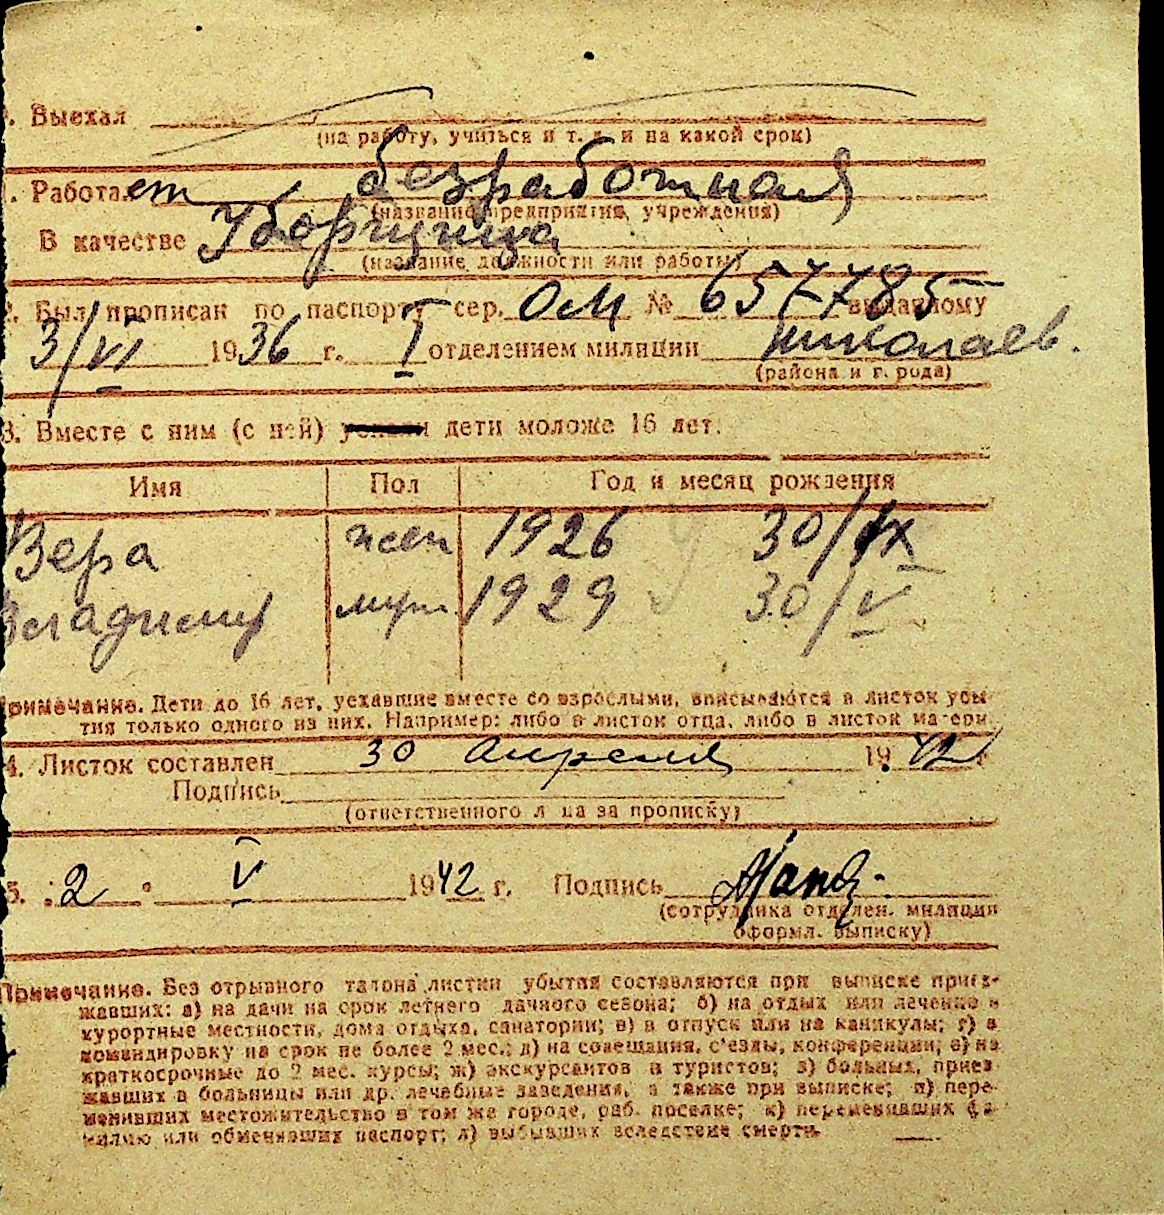 . Выехал
(на работу, учиться и т. д. и на какой срок)
. Работает безработная
(название предприятия, учреждения)
В качестве Уборщица
(название должности или работы)
2. Был прописан по паспорту сер. ОМ № 657785 выданному
3/VI 1936 г. I отделением милиции Николаев.
(района и города)
3. Вместе с ним (с ней) дети моложе 16 лет:
Имя Пол Год и месяц рождения
Вера жен 1926 30/IX
Владимир муж 1929 30/V
Примечание. Дети до 16 лет, уехавшие вместе со взрослыми, вписываются в листок убы-
тия только одного из них. Например: либо в листок отца, либо в листок матери.
4. Листок составлен 30 апреля 1942
Подпись
(ответственного лица за прописку)
5. 2 V 1942 г. Подпись
(сотрудника отделен. милиции
оформл. выписку)
Примечание. Без отрывного талона листки убытия составляются при выписке приез-
жавших: а) на дачи на срок летнего дачного сезона; б) на отдых или лечение в
курортные местности, дома отдыха, санатории; в) в отпуск или на каникулы; г) в
командировку на срок не более 2 мес.; д) на совещания, с'езды, конференции; е) на
краткосрочные до 2 мес. курсы; ж) экскурсантов и туристов; з) больных, приез-
жавших в больницы или др. лечебные заведения, а также при выписке; и) пере-
менивших местожительство в том же городе, раб. поселке; к) переменивших фа-
милию или обменявших паспорт; л) выбывших вследствие смерти.